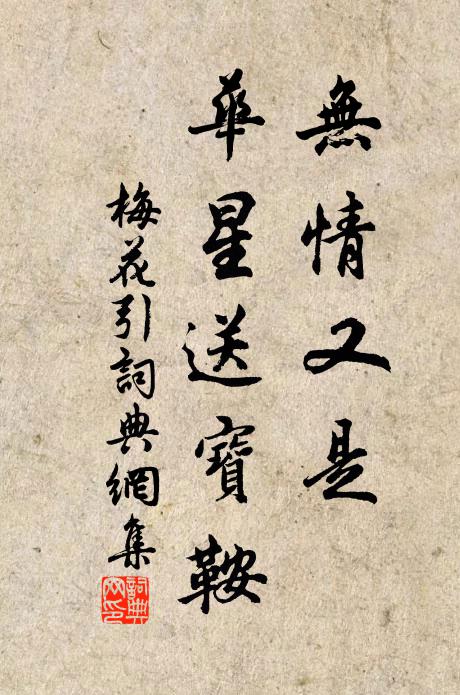 無情又是
華星送寶鞍
梅花引詞典網集
詞典網印